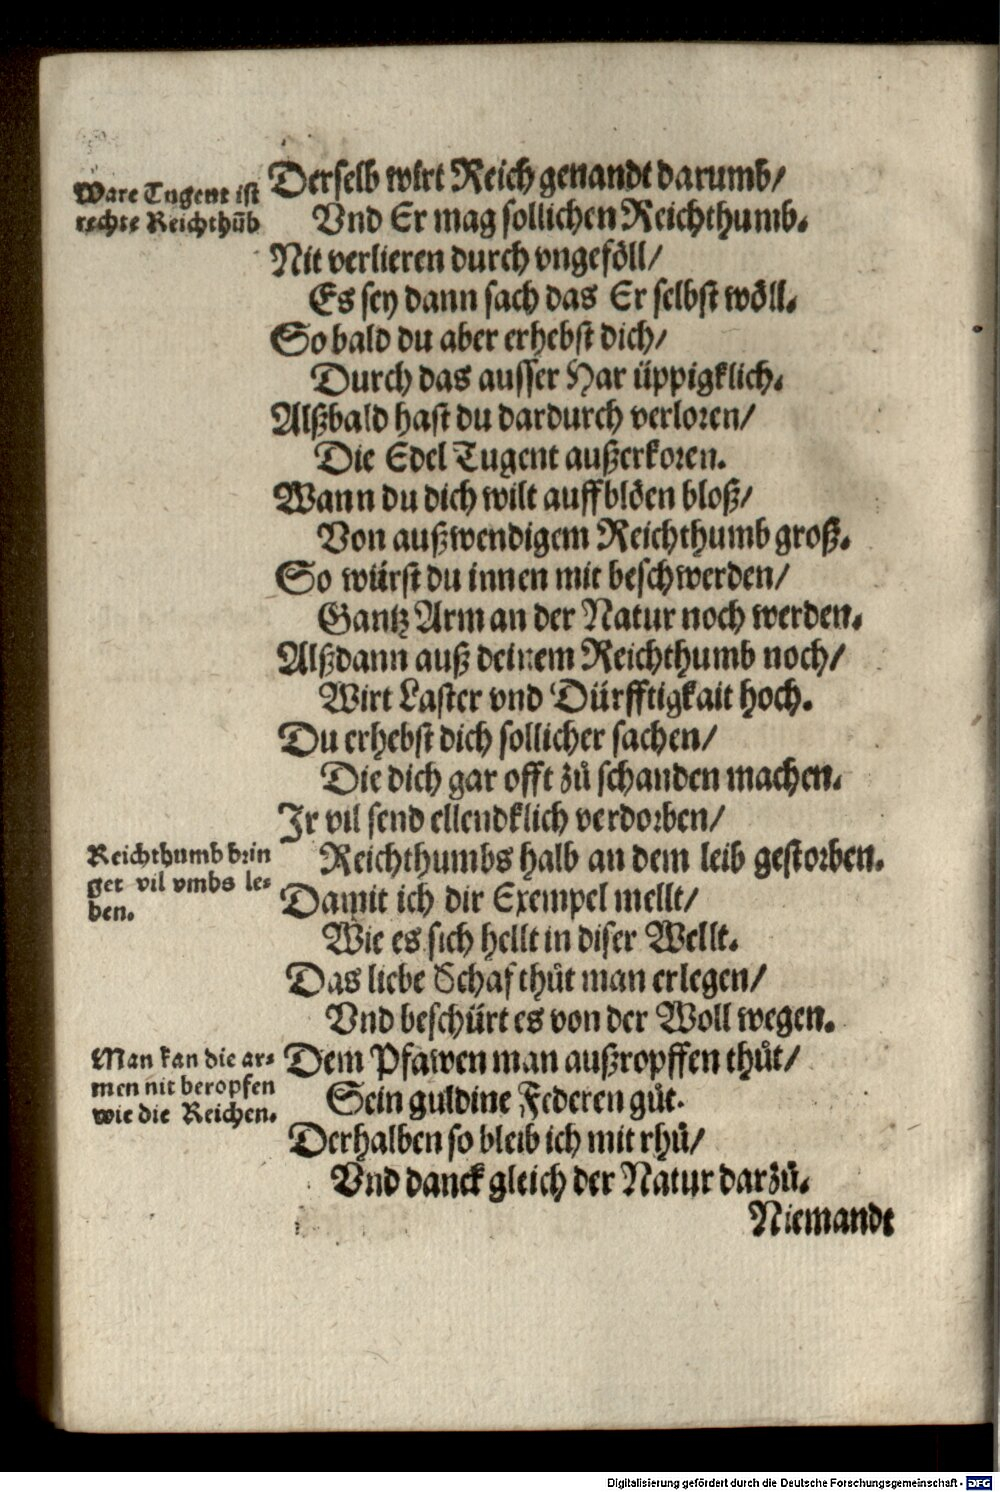 Ware Tugent ist
rechte Reichthūb
Derselb wirt Reich genandt darumb/
Vnd Er mag sollichen Reichthumb.
Nit verlieren durch vngeföll/
Es sey dann sach das Er selbst wöll.
So bald du aber erhebst dich/
Durch das ausser Har üppigklich.
Alßbald hast du dardurch verloren/
Die Edel Tugent außerkoren.
Wann du dich wilt auffblöen bloß/
Von außwendigem Reichthumb groß.
So würst du innen mit beschwerden/
Gantz Arm an der Natur noch werden.
Alßdann auß deinem Reichthumb noch/
Wirt Laster vnd Dürfftigkait hoch.
Du erhebst dich sollicher sachen/
Die dich gar offt zů schanden machen.
Ir vil send ellendklich verdorben/
Reichthumb brin
get vil vmbs le-
ben.
Reichthumbs halb an dem leib gestorben.
Damit ich dir Exempel mellt/
Wie es sich hellt in diser Wellt.
Das liebe Schaf thůt man erlegen/
Vnd beschürt es von der Woll wegen.
Man kan die ar-
men nit beropfen
wie die Reichen.
Dem Pfawen man außropffen thůt/
Sein guldine Federen gůt.
Derhalben so bleib ich mit rhů/
Vnd danck gleich der Natur darzů.
Niemandt
Digitalisierung gefördert durch die Deutsche Forschungsgemeinschaft - DFG